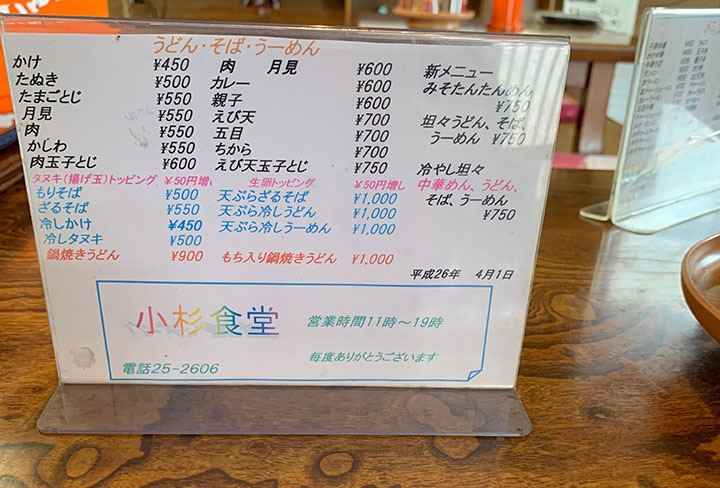 うどん・そば・うーめん
かけ ¥450
たぬき ¥500
たまごとじ ¥550
月見 ¥550
肉 ¥550
かしわ ¥550
肉玉子とじ ¥600
タヌキ(揚げ玉)トッピング ¥50円増し
もりそば ¥500
ざるそば ¥550
冷しかけ ¥450
冷しタヌキ ¥500
鍋焼きうどん ¥900
肉 月見 ¥600
カレー ¥600
親子 ¥600
えび天 ¥700
五目 ¥700
ちから ¥700
えび天玉子とじ ¥750
生卵トッピング ¥50円増し
天ぷらざるそば ¥1,000
天ぷら冷しうどん ¥1,000
天ぷら冷しうーめん ¥1,000
もち入り鍋焼きうどん ¥1,000
新メニュー
みそたんたんめん
¥750
坦々うどん、そば、
うーめん ¥750
冷やし坦々
中華めん、うどん、
そば、うーめん
¥750
平成26年 4月1日
小杉食堂
営業時間11時~19時
毎度ありがとうございます
電話25-2606